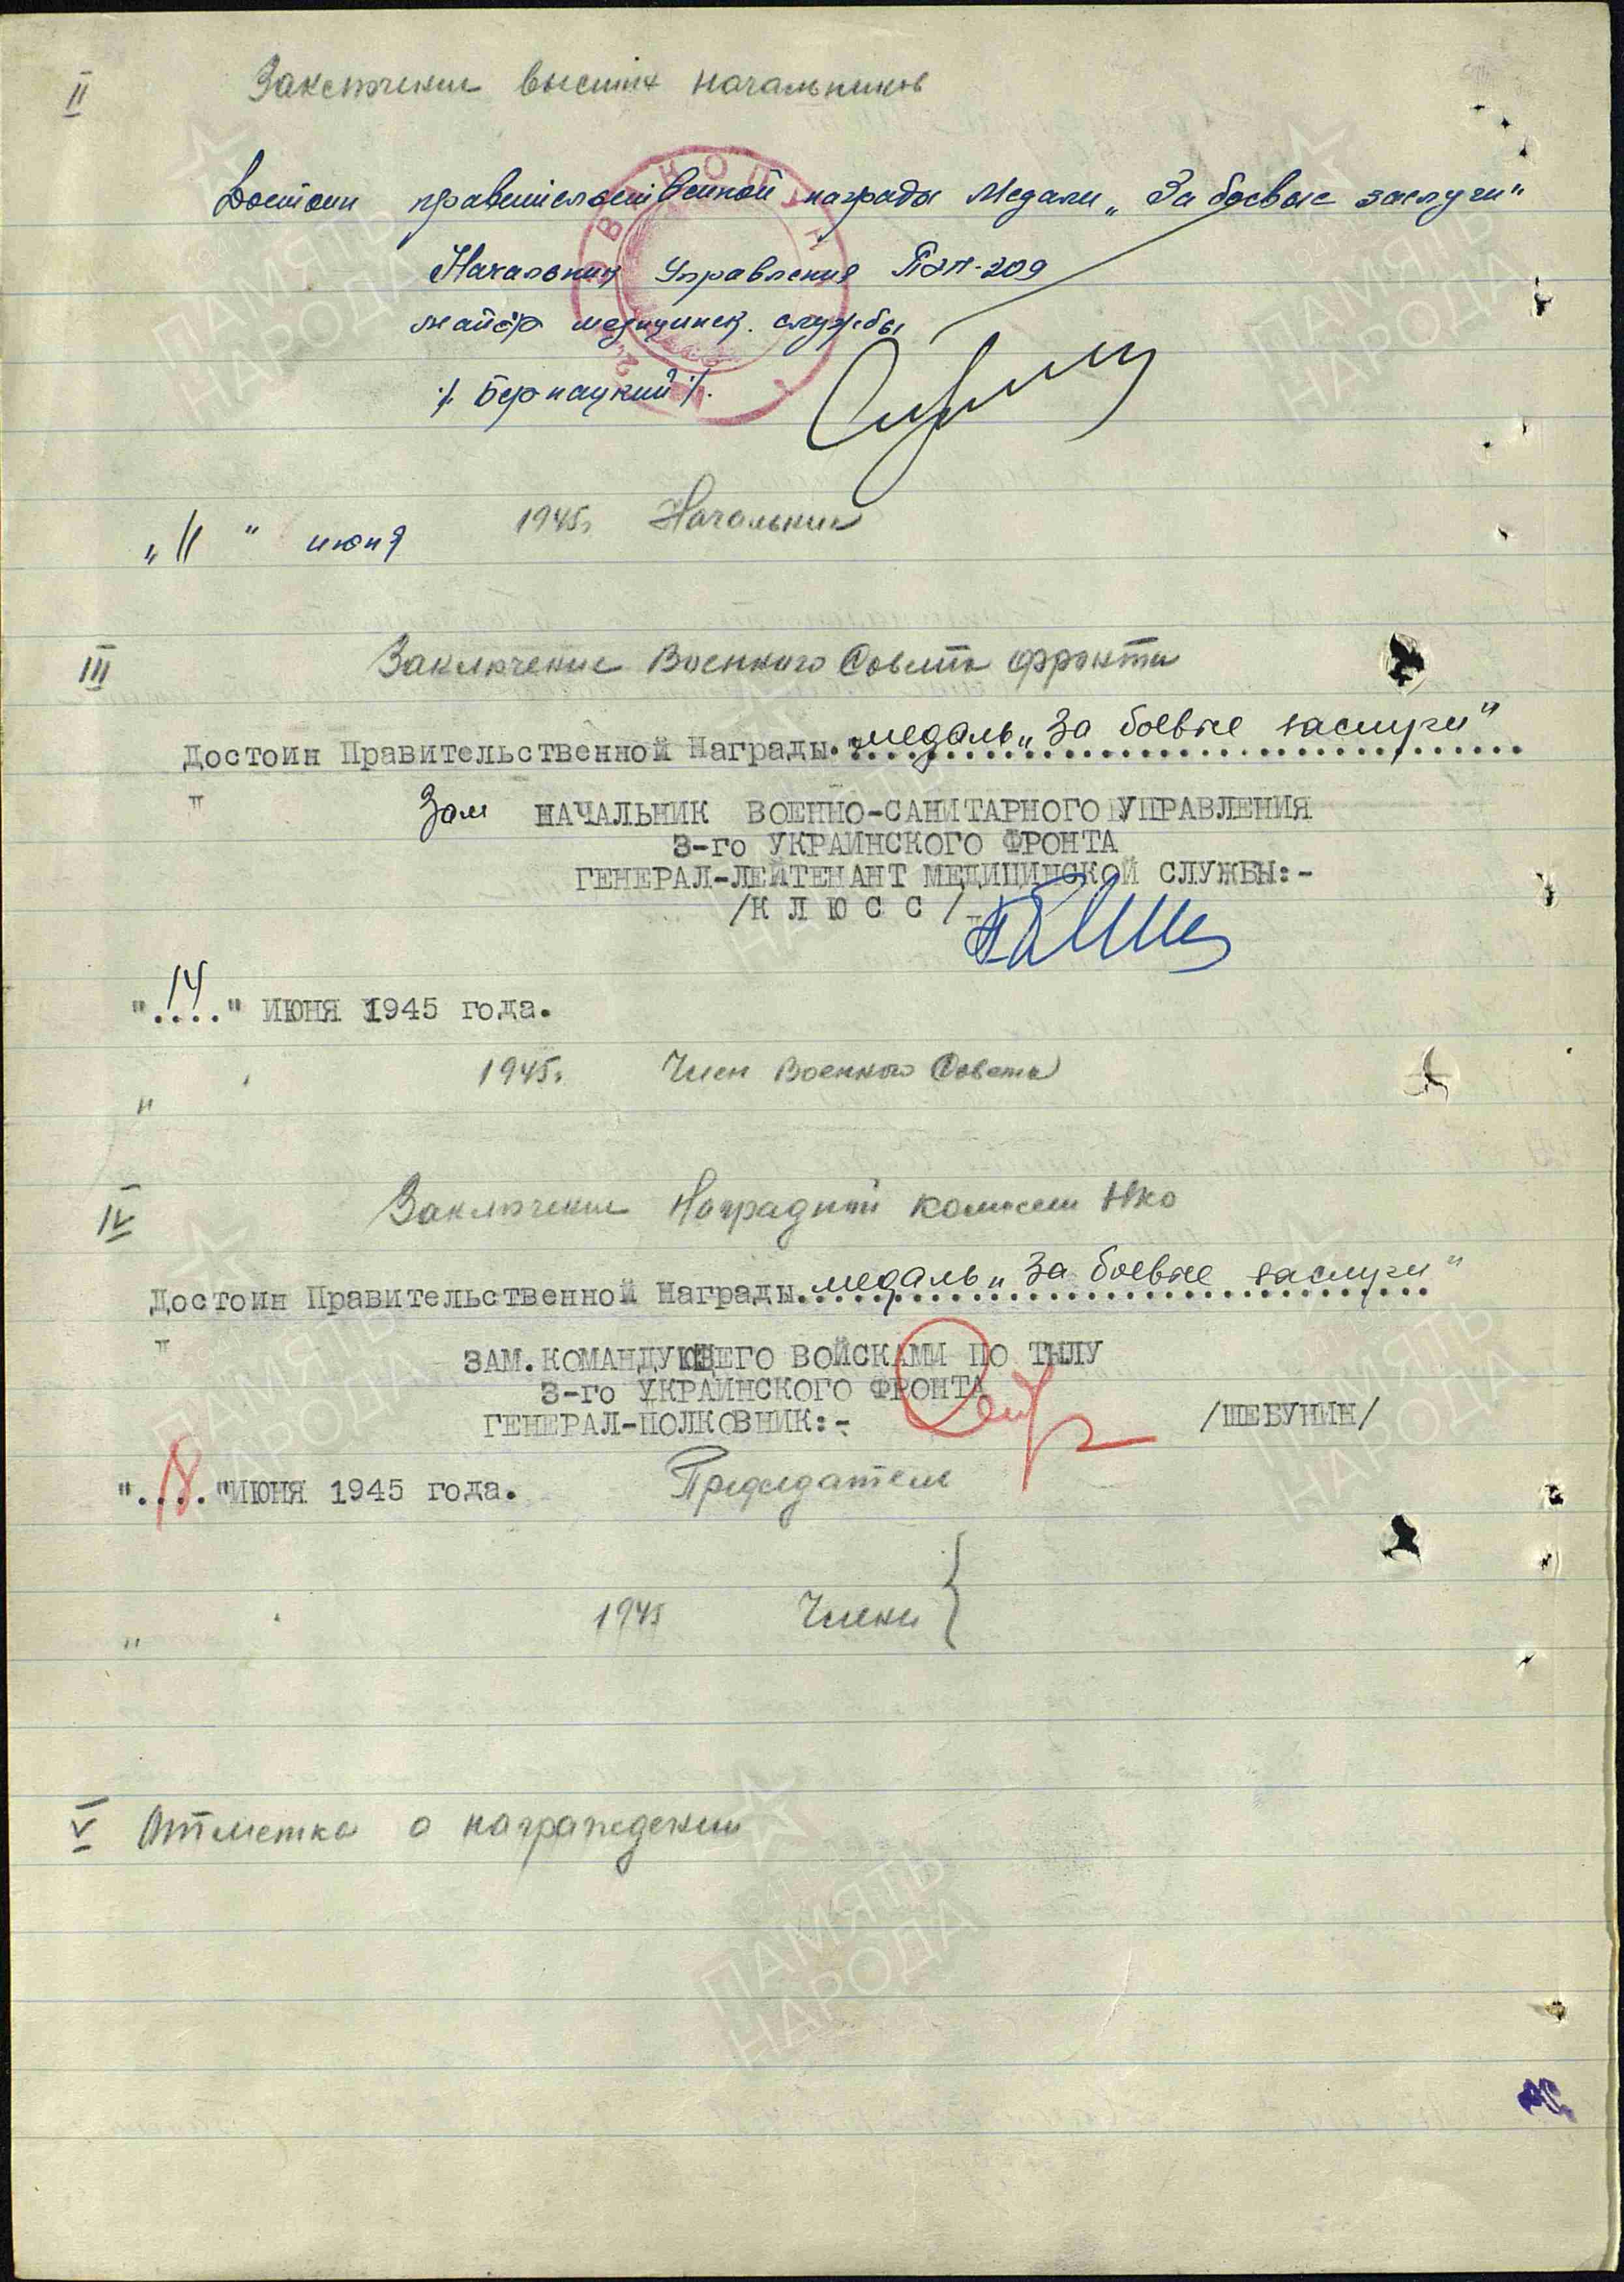 II Заключение высших начальников
Достоин правительственной награды Медали „За боевые заслуги"
Начальник Управления ПЭП-209
майор медицинск. службы
/. Бернацкий /.
„11" июня 1945г. Начальник
III Заключение Военного Совета фронта
Достоин Правительственной Награды. медаль „За боевые заслуги"
"
Зам НАЧАЛЬНИК ВОЕННО-САНИТАРНОГО УПРАВЛЕНИЯ
3-го УКРАИНСКОГО ФРОНТА
ГЕНЕРАЛ-ЛЕЙТЕНАНТ МЕДИЦИНСКОЙ СЛУЖБЫ:-
/К Л Ю С С /
".14." ИЮНЯ 1945 года.
" 1945г. Член Военного Совета
IV Заключение Наградной комиссии НКО
Достоин Правительственной Награды. медаль „За боевые заслуги"
"
ЗАМ. КОМАНДУЮЩЕГО ВОЙСКАМИ ПО ТЫЛУ
3-го УКРАИНСКОГО ФРОНТА
ГЕНЕРАЛ-ПОЛКОВНИК:- /ШЕБУНИН/
".18." ИЮНЯ 1945 года. Председатель
" 1945 Члены {
V Отметка о награждении
ПАМЯТЬ
НАРОДА